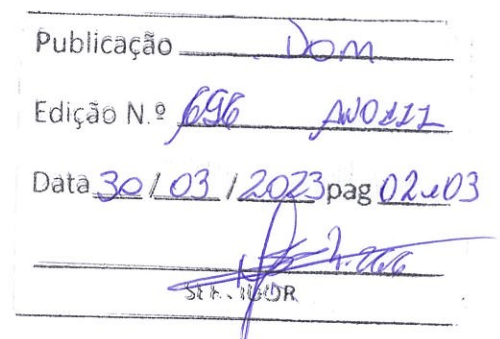 Publicação DOM
Edição N.º 696 ANO III
Data 30 / 03 / 2023 pag 02 e 03
SERVIDOR